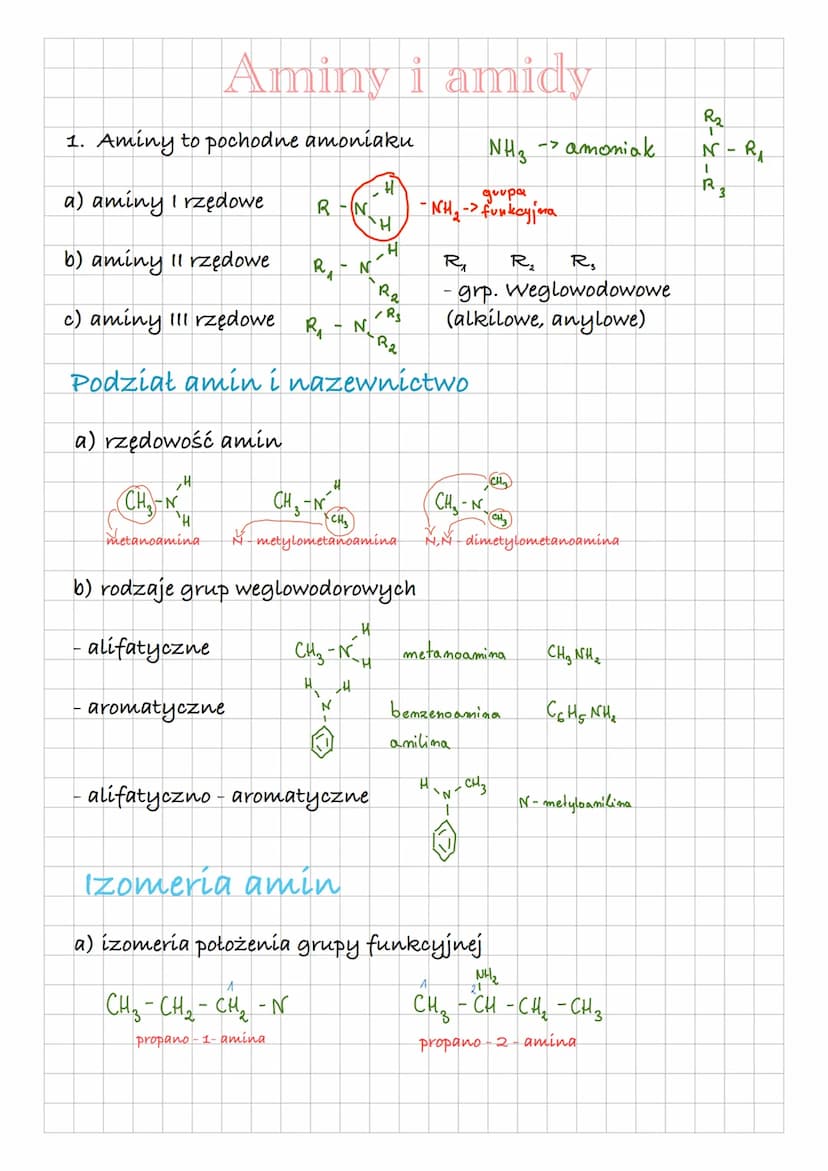 Aminy i amidy
1. Aminy to pochodne amoniaku
NH₃ -> amoniak
R₂
N - R₁
R₃
a) aminy I rzędowe
R - N
H
H
- NH₂ -> grupa funkcyjna
b) aminy II rzędowe
R₁ - N
H
R₂
R₁ R₂ R₃
- grp. Weglowodowowe
(alkilowe, anylowe)
c) aminy III rzędowe
R₁ - N
R₃
R₂
Podział amin i nazewnictwo
a) rzędowość amin
CH₃-N
H
H
CH₃-N
H
CH₃
CH₃-N
CH₃
CH₃
metanoamina
N - metylometanoamina
N,N - dimetylometanoamina
b) rodzaje grup weglowodorowych
- alifatyczne
CH₃-N
H
H
metanoamina
CH₃NH₂
- aromatyczne
H H
N
benzenoamina
C₆H₅NH₂
anilina
- alifatyczno - aromatyczne
H CH₃
N
N-metyloanilina
Izomeria amin
a) izomeria położenia grupy funkcyjnej
1
CH₃ - CH₂ - CH₂ - N
propano - 1- amina
NH₂
1 2
CH₃ - CH - CH₂ - CH₃
propano - 2 - amina